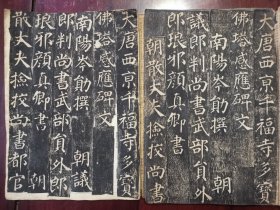 大唐西京千福寺多寶
佛塔感應碑文
南陽岑勛撰 朝
議郎判尚書武部員外
郎琅邪顏真卿書
朝散大夫撿挍尚書
大唐西京千福寺多寶
佛塔感應碑文
南陽岑勛撰 朝議
郎判尚書武部員外郎
琅邪顏真卿書 朝
散大夫撿挍尚書都官